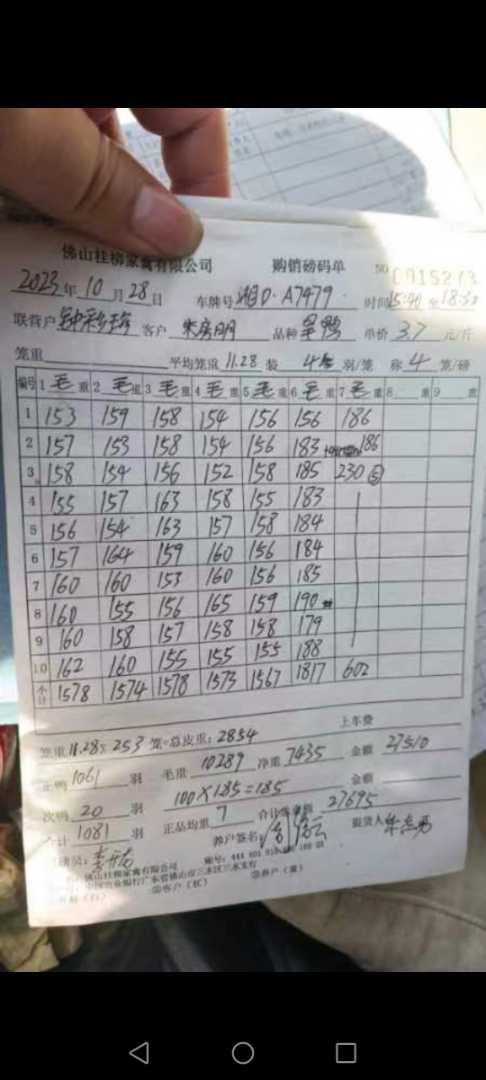 佛山桂柳家禽有限公司 购销磅码单 NO 0915273
2023年10月28日 车牌号 湘D·A7479 时间15:40至18:30
联营户 客户 品种 单价 3.7 元/斤
笼重 平均笼重 11.28 装 羽/笼 称 4 笼/磅
编号 1毛重 2毛重 3毛重 4毛重 5毛重 6毛重 7毛重 8 重 9 重
1 153 159 158 154 156 156 186
2 157 153 158 154 156 183 186
3 158 154 156 152 158 185 230 ⑤
4 155 157 163 158 155 183
5 156 154 163 157 158 184
6 157 164 159 160 156 184
7 160 160 153 160 156 185
8 160 155 156 165 159 190
9 160 158 157 158 158 179
10 162 160 155 155 155 188
小计 1578 1574 1578 1573 1567 1817 602
上车费
笼重 11.28× 253 笼=总皮重: 2854
正鸭 1061 羽 毛重 10289 净重 7435 金额 27510
次鸭 20 羽 100×185=185 金额
合计 1081 羽 正品均重 7 合计总金额 27695
养户签名: 提货人
佛山桂柳家禽有限公司
中国农业银行广东省佛山市三水区三水支行
②客户(红) ③养户(黄)